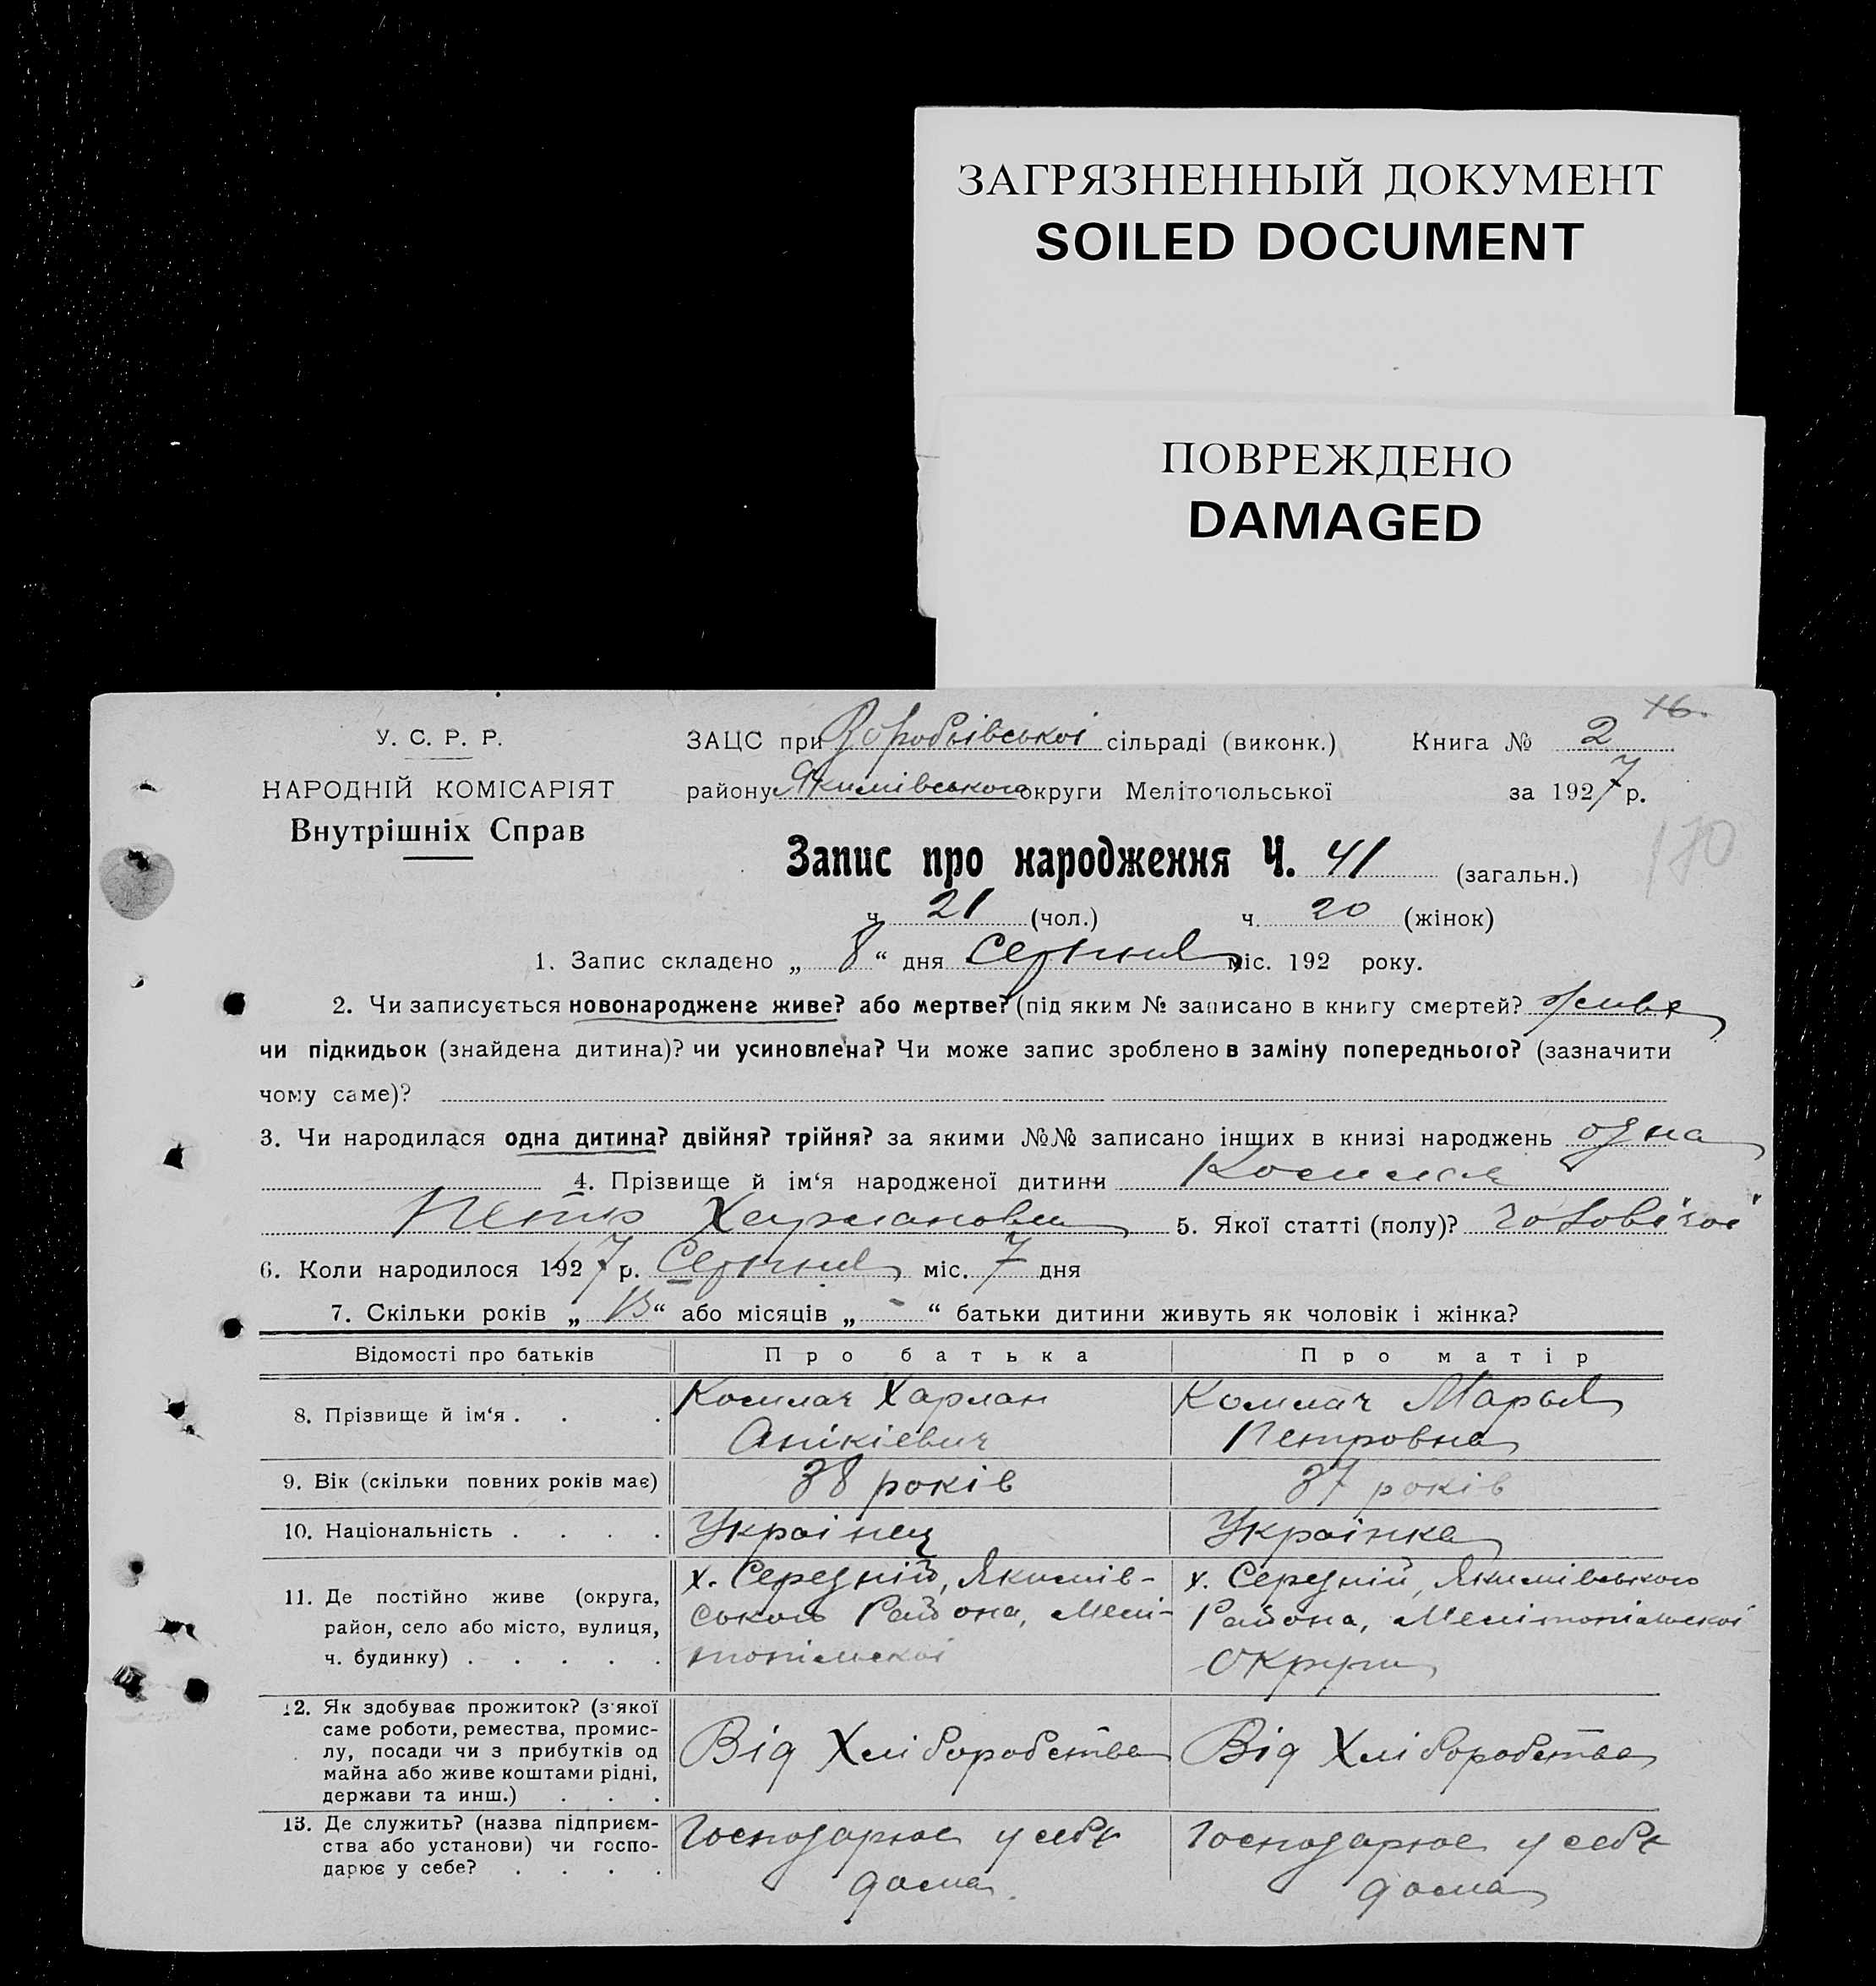 ЗАГРЯЗНЕННЫЙ ДОКУМЕНТ
SOILED DOCUMENT
ПОВРЕЖДЕНО
DAMAGED
16.
У. С. Р. Р.
ЗАЦС при Воробьівськоі сільраді (виконк.) Книга № 2
НАРОДНІЙ КОМІСАРІЯТ
району Якимівського округи Мелітопольської за 1927 р.
Внутрішніх Справ
170
Запис про народження Ч. 41 (загальн.)
ч. 21 (чол.) ч. 20 (жінок)
1. Запис складено „ 8 “ дня Серпня міс. 192 року.
2. Чи записується новонароджене живе? або мертве? (під яким № записано в книгу смертей? живе
чи підкидьок (знайдена дитина)? чи усиновлена? Чи може запис зроблено в заміну попереднього? (зазначити
чому саме)?
3. Чи народилася одна дитина? двійня? трійня? за якими №№ записано інших в книзі народжень одна
4. Прізвище й ім‘я народженої дитини
Петро 5. Якої статті (полу)? чоловічоі
6. Коли народилося 1927 р. Серпня міс. 7 дня
7. Скільки років „ 13 “ або місяців „ - “ батьки дитини живуть як чоловік і жінка?
Відомості про батьків Про батька Про матір
8. Прізвище й ім‘я . . . Комлач Харлан Комлач Марья
Анікіевич Петровна
9. Вік (скільки повних років має) 38 років 37 років
10. Національність . . . . Украінец Украінка
11. Де постійно живе (округа, район, село або місто, вулиця, ч. будинку) . . . . .
х. Середній, Якимів-
ського Района, Мелі-
топільскоі
х. Середній, Якимівського
Района, Мелітопільскоі
Округи
12. Як здобуває прожиток? (з‘якої
саме роботи, ремества, промис-
лу, посади чи з прибутків од
майна або живе коштами рідні,
держави та инш.) . . .
Від Хліборобства Від Хліборобства
13. Де служить? (назва підприєм-
ства або установи) чи госпо-
дарює у себе? . . . .
Господарюе у себе
дома.
Господарюе у себе
дома